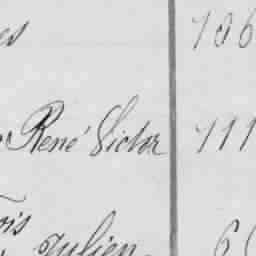 es 106
René Victor 111
ois
Julien 6